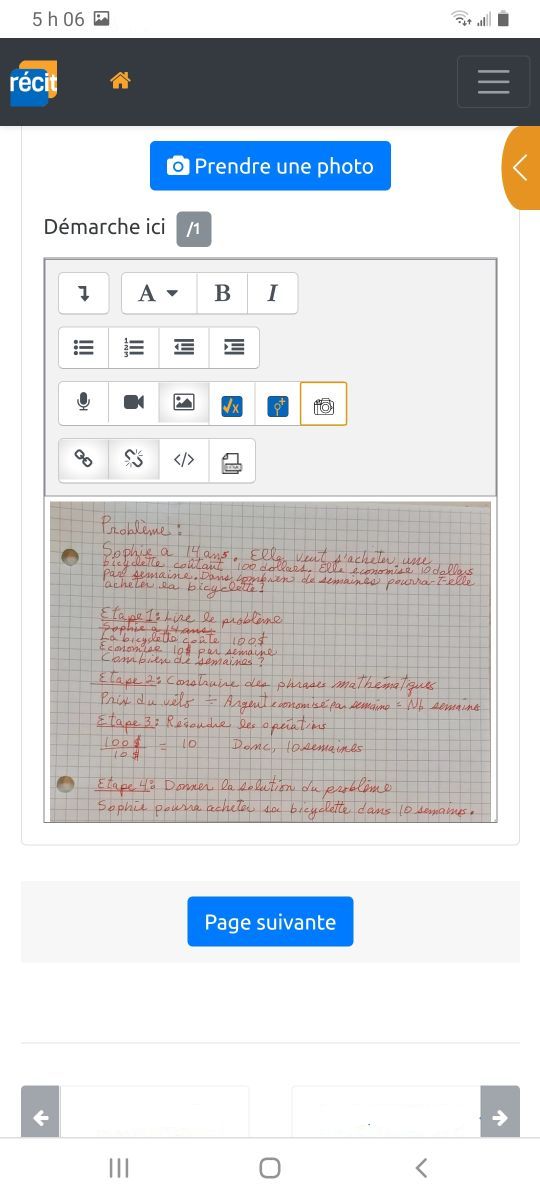 5 h 06
récit
Prendre une photo
Démarche ici /1
A B I
√x
</>
Problème :
Sophie a 14 ans. Elle veut s'acheter une
bicyclette coûtant 100 dollars. Elle économise 10 dollars
par semaine. Dans combien de semaines pourra-t-elle
acheter sa bicyclette?
Étape 1: Lire le problème
Sophie a 14 ans.
La bicyclette coûte 100$
Économise 10$ par semaine
Combien de semaines ?
Étape 2: Construire des phrases mathématiques
Prix du vélo ÷ Argent économisé par semaine = Nb semaines
Étape 3: Résoudre les opérations
100 $ = 10 Donc, 10 semaines
10 $
Étape 4: Donner la solution du problème
Sophie pourra acheter sa bicyclette dans 10 semaines.
Page suivante